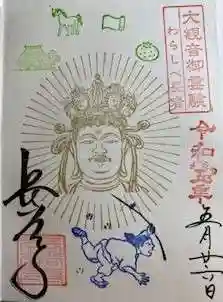 大観音御霊験
わらしべ長者
令和
五月廿六日
長谷寺